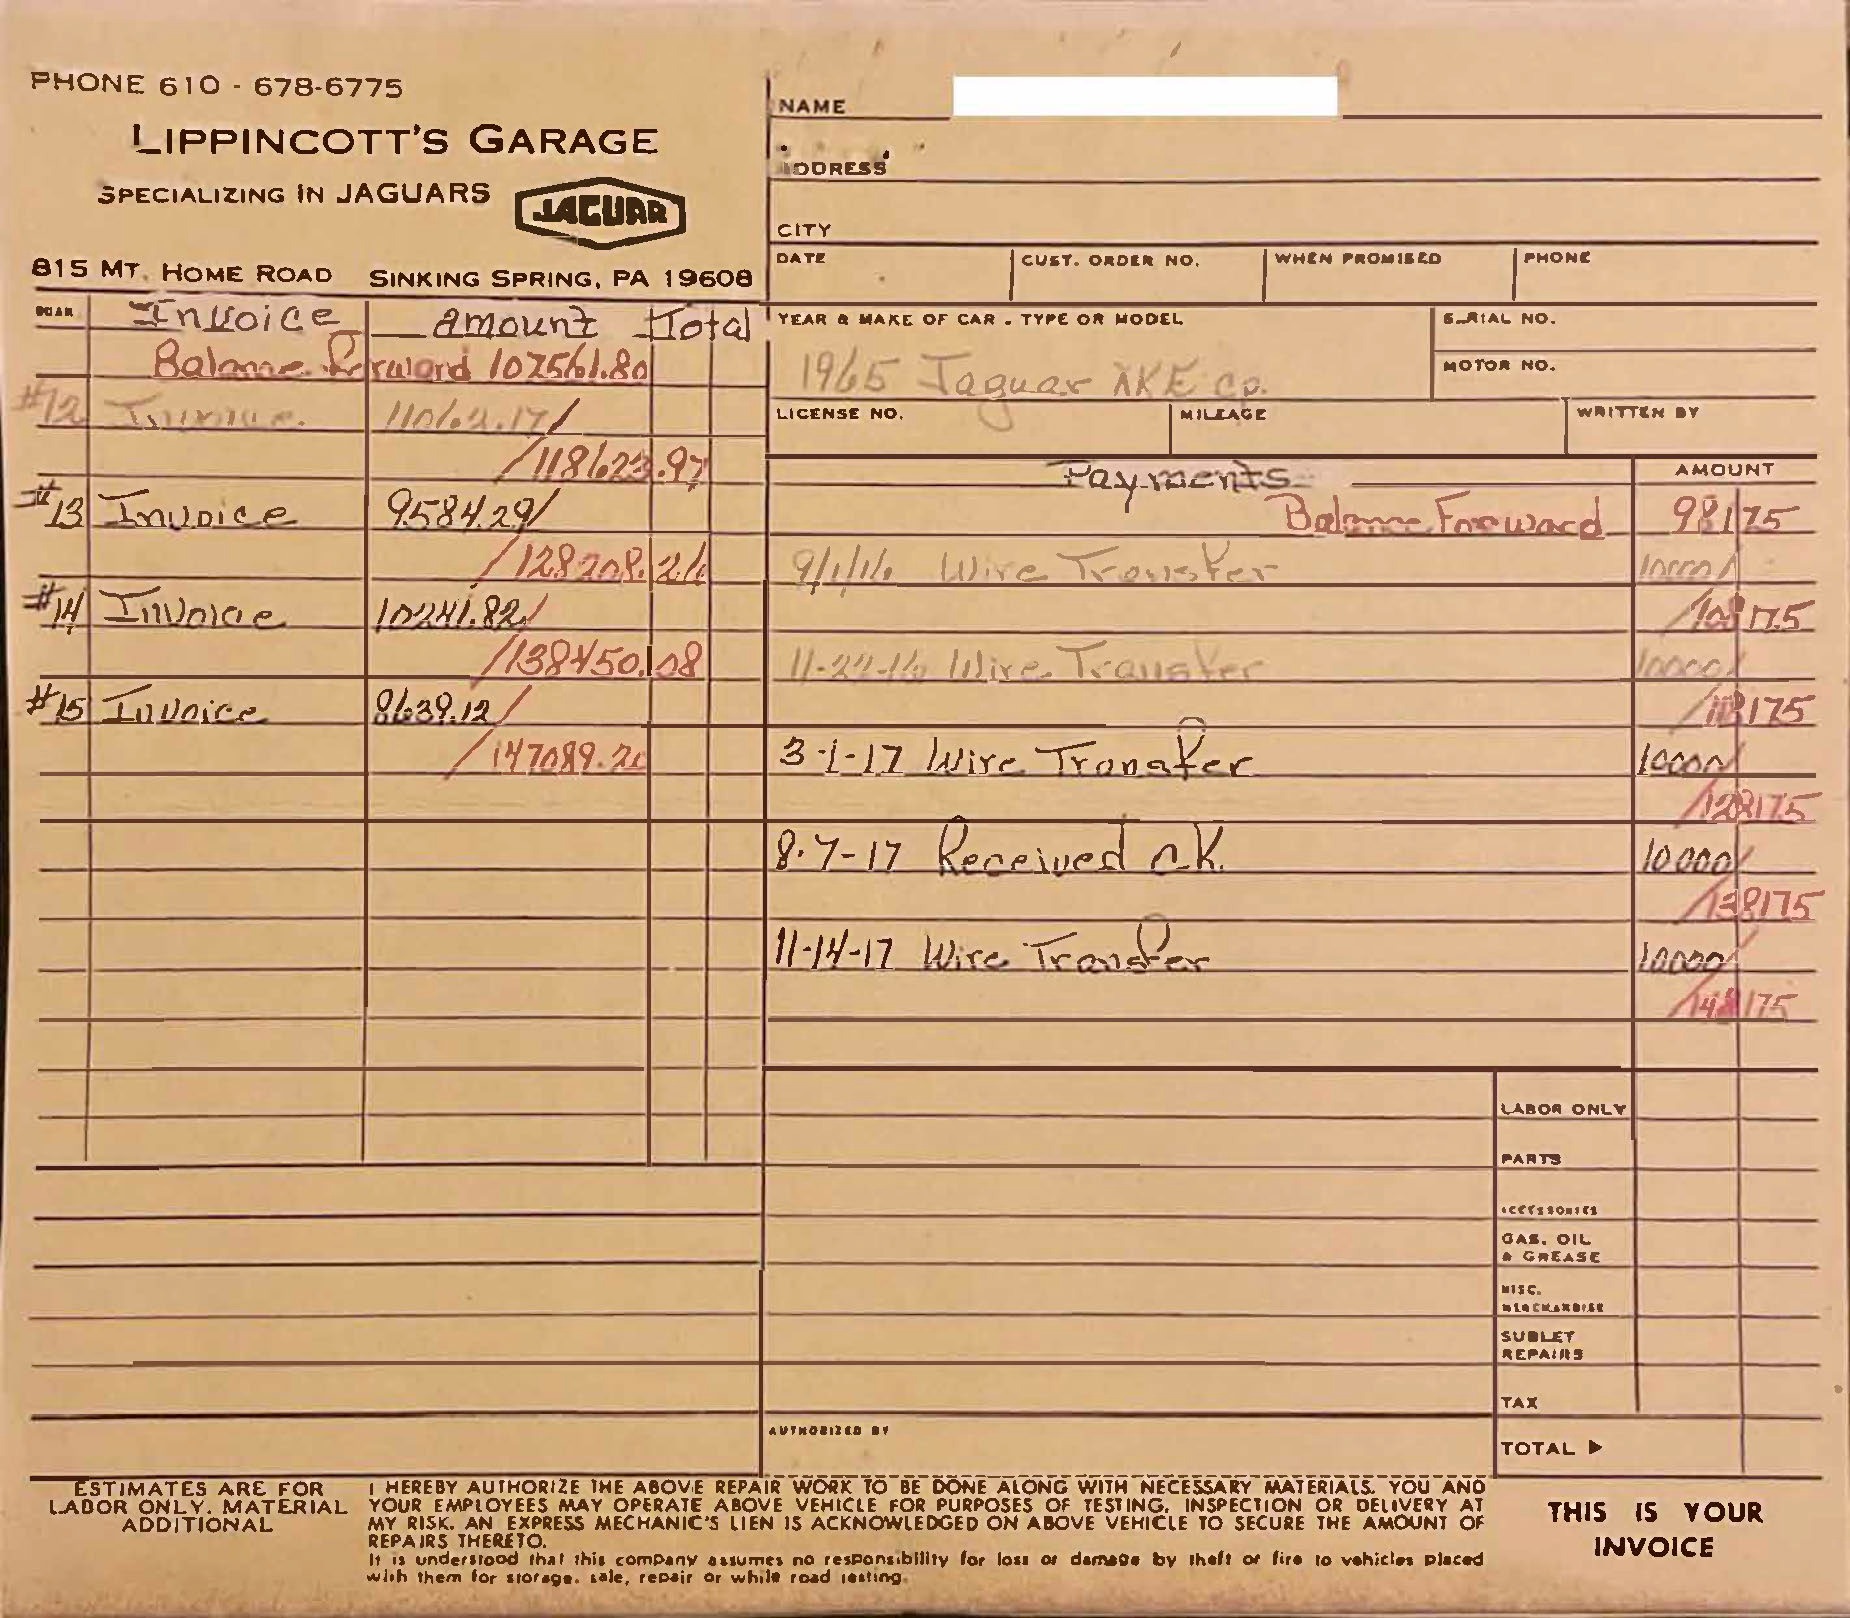 PHONE 610 - 678-6775
LIPPINCOTT'S GARAGE
SPECIALIZING IN JAGUARS
JAGUAR
815 MT. HOME ROAD SINKING SPRING, PA 19608
NAME
ADDRESS
CITY
DATE CUST. ORDER NO. WHEN PROMISED PHONE
YEAR & MAKE OF CAR - TYPE OR MODEL SERIAL NO.
1965 Jaguar XKE cp.
MOTOR NO.
LICENSE NO. MILEAGE WRITTEN BY
QUAN. Invoice amount Total
Balance Forward 107561.80
#12 Invoice 11062.17/
/118623.97
#13 Invoice 9584.29/
/128208.26
#14 Invoice 10241.82/
/138450.08
#15 Invoice 8639.12/
/147089.20
Payments AMOUNT
Balance Forward 98175
9/1/16 Wire Transfer 10000/
/108175
11-22-16 Wire Transfer 10000/
/118175
3-1-17 Wire Transfer 10000/
/128175
8-7-17 Received CK. 10000/
/138175
11-14-17 Wire Transfer 10000/
/148175
LABOR ONLY
PARTS
ACCESSORIES
GAS, OIL
& GREASE
MISC.
MERCHANDISE
SUBLET
REPAIRS
TAX
AUTHORIZED BY
TOTAL ▶
ESTIMATES ARE FOR
LABOR ONLY. MATERIAL
ADDITIONAL
I HEREBY AUTHORIZE THE ABOVE REPAIR WORK TO BE DONE ALONG WITH NECESSARY MATERIALS. YOU AND
YOUR EMPLOYEES MAY OPERATE ABOVE VEHICLE FOR PURPOSES OF TESTING, INSPECTION OR DELIVERY AT
MY RISK. AN EXPRESS MECHANIC'S LIEN IS ACKNOWLEDGED ON ABOVE VEHICLE TO SECURE THE AMOUNT OF
REPAIRS THERETO.
It is understood that this company assumes no responsibility for loss or damage by theft or fire to vehicles placed
with them for storage, sale, repair or while road testing.
THIS IS YOUR
INVOICE